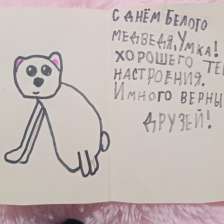 С ДНЁМ БЕЛОГО
МЕДВЕДЯ, УМКА!
ХОРОШЕГО ТЕ
НАСТРОЕНИЯ.
И МНОГО ВЕРНЫ
ДРУЗЕЙ!